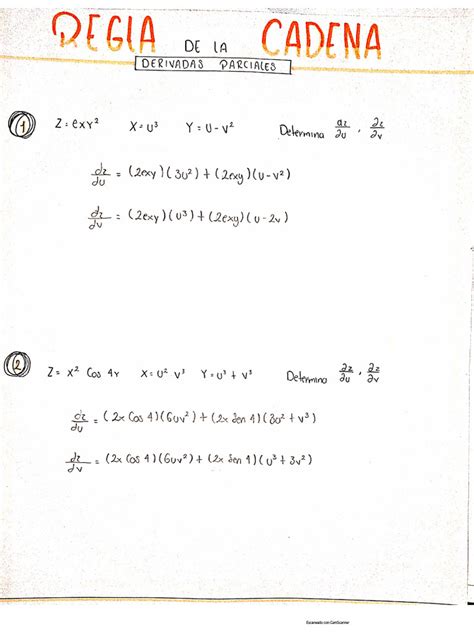 REGLA DE LA CADENA
DERIVADAS PARCIALES
① Z = exy² X = U³ Y = U - V² Determina ∂z/∂u , ∂z/∂v
dz/du = (2exy)(3u²) + (2exy)(u-v²)
dz/dv = (2exy)(u³) + (2exy)(u-2v)
② Z = X² Cos 4Y X = U² V³ Y = U³ + V³ Determina ∂z/∂u , ∂z/∂v
dz/du = (2x Cos 4)(6uv²) + (2x Sen 4)(3u² + v³)
dz/dv = (2x Cos 4)(6uv²) + (2x Sen 4)(u³ + 3v²)
Escaneado con CamScanner